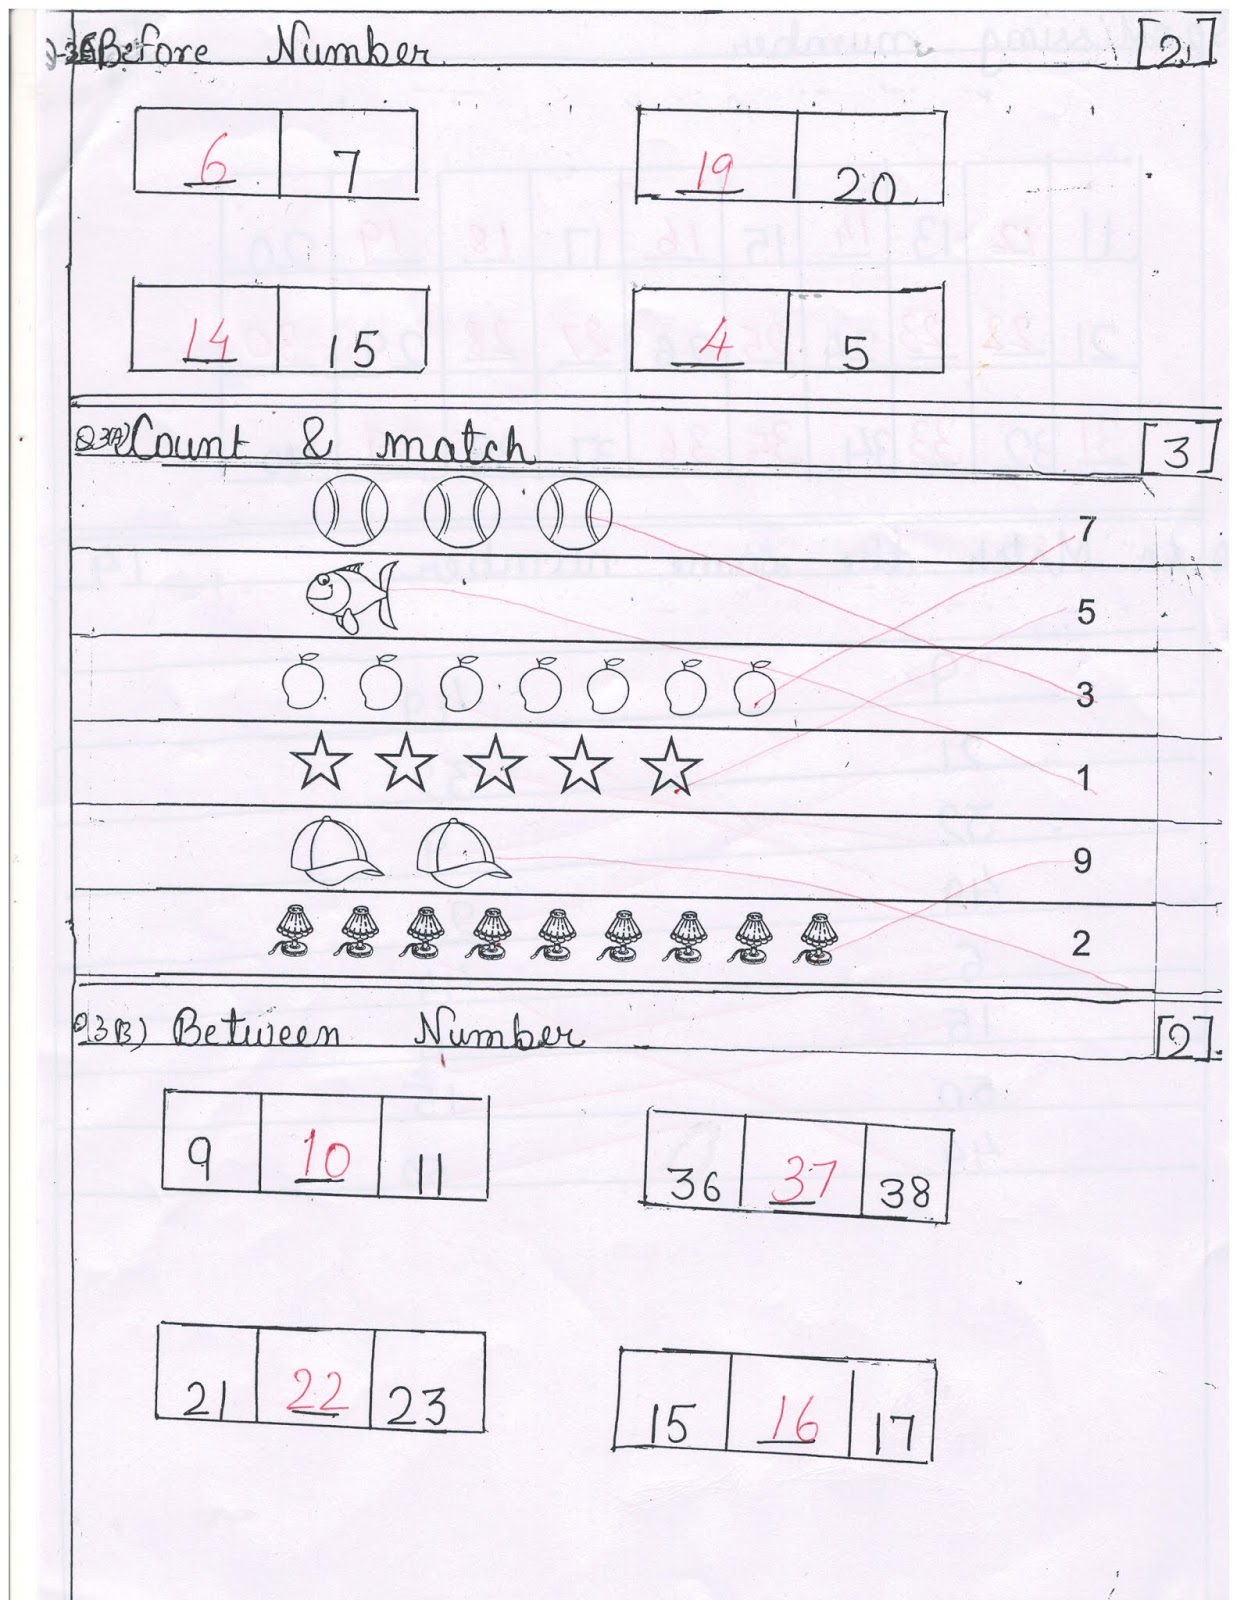 Before Number [2]
6 7 19 20
14 15 4 5
Q3(A) Count & match [3]
7
5
3
1
9
2
Q3B) Between Number [2]
9 10 11 36 37 38
21 22 23 15 16 17